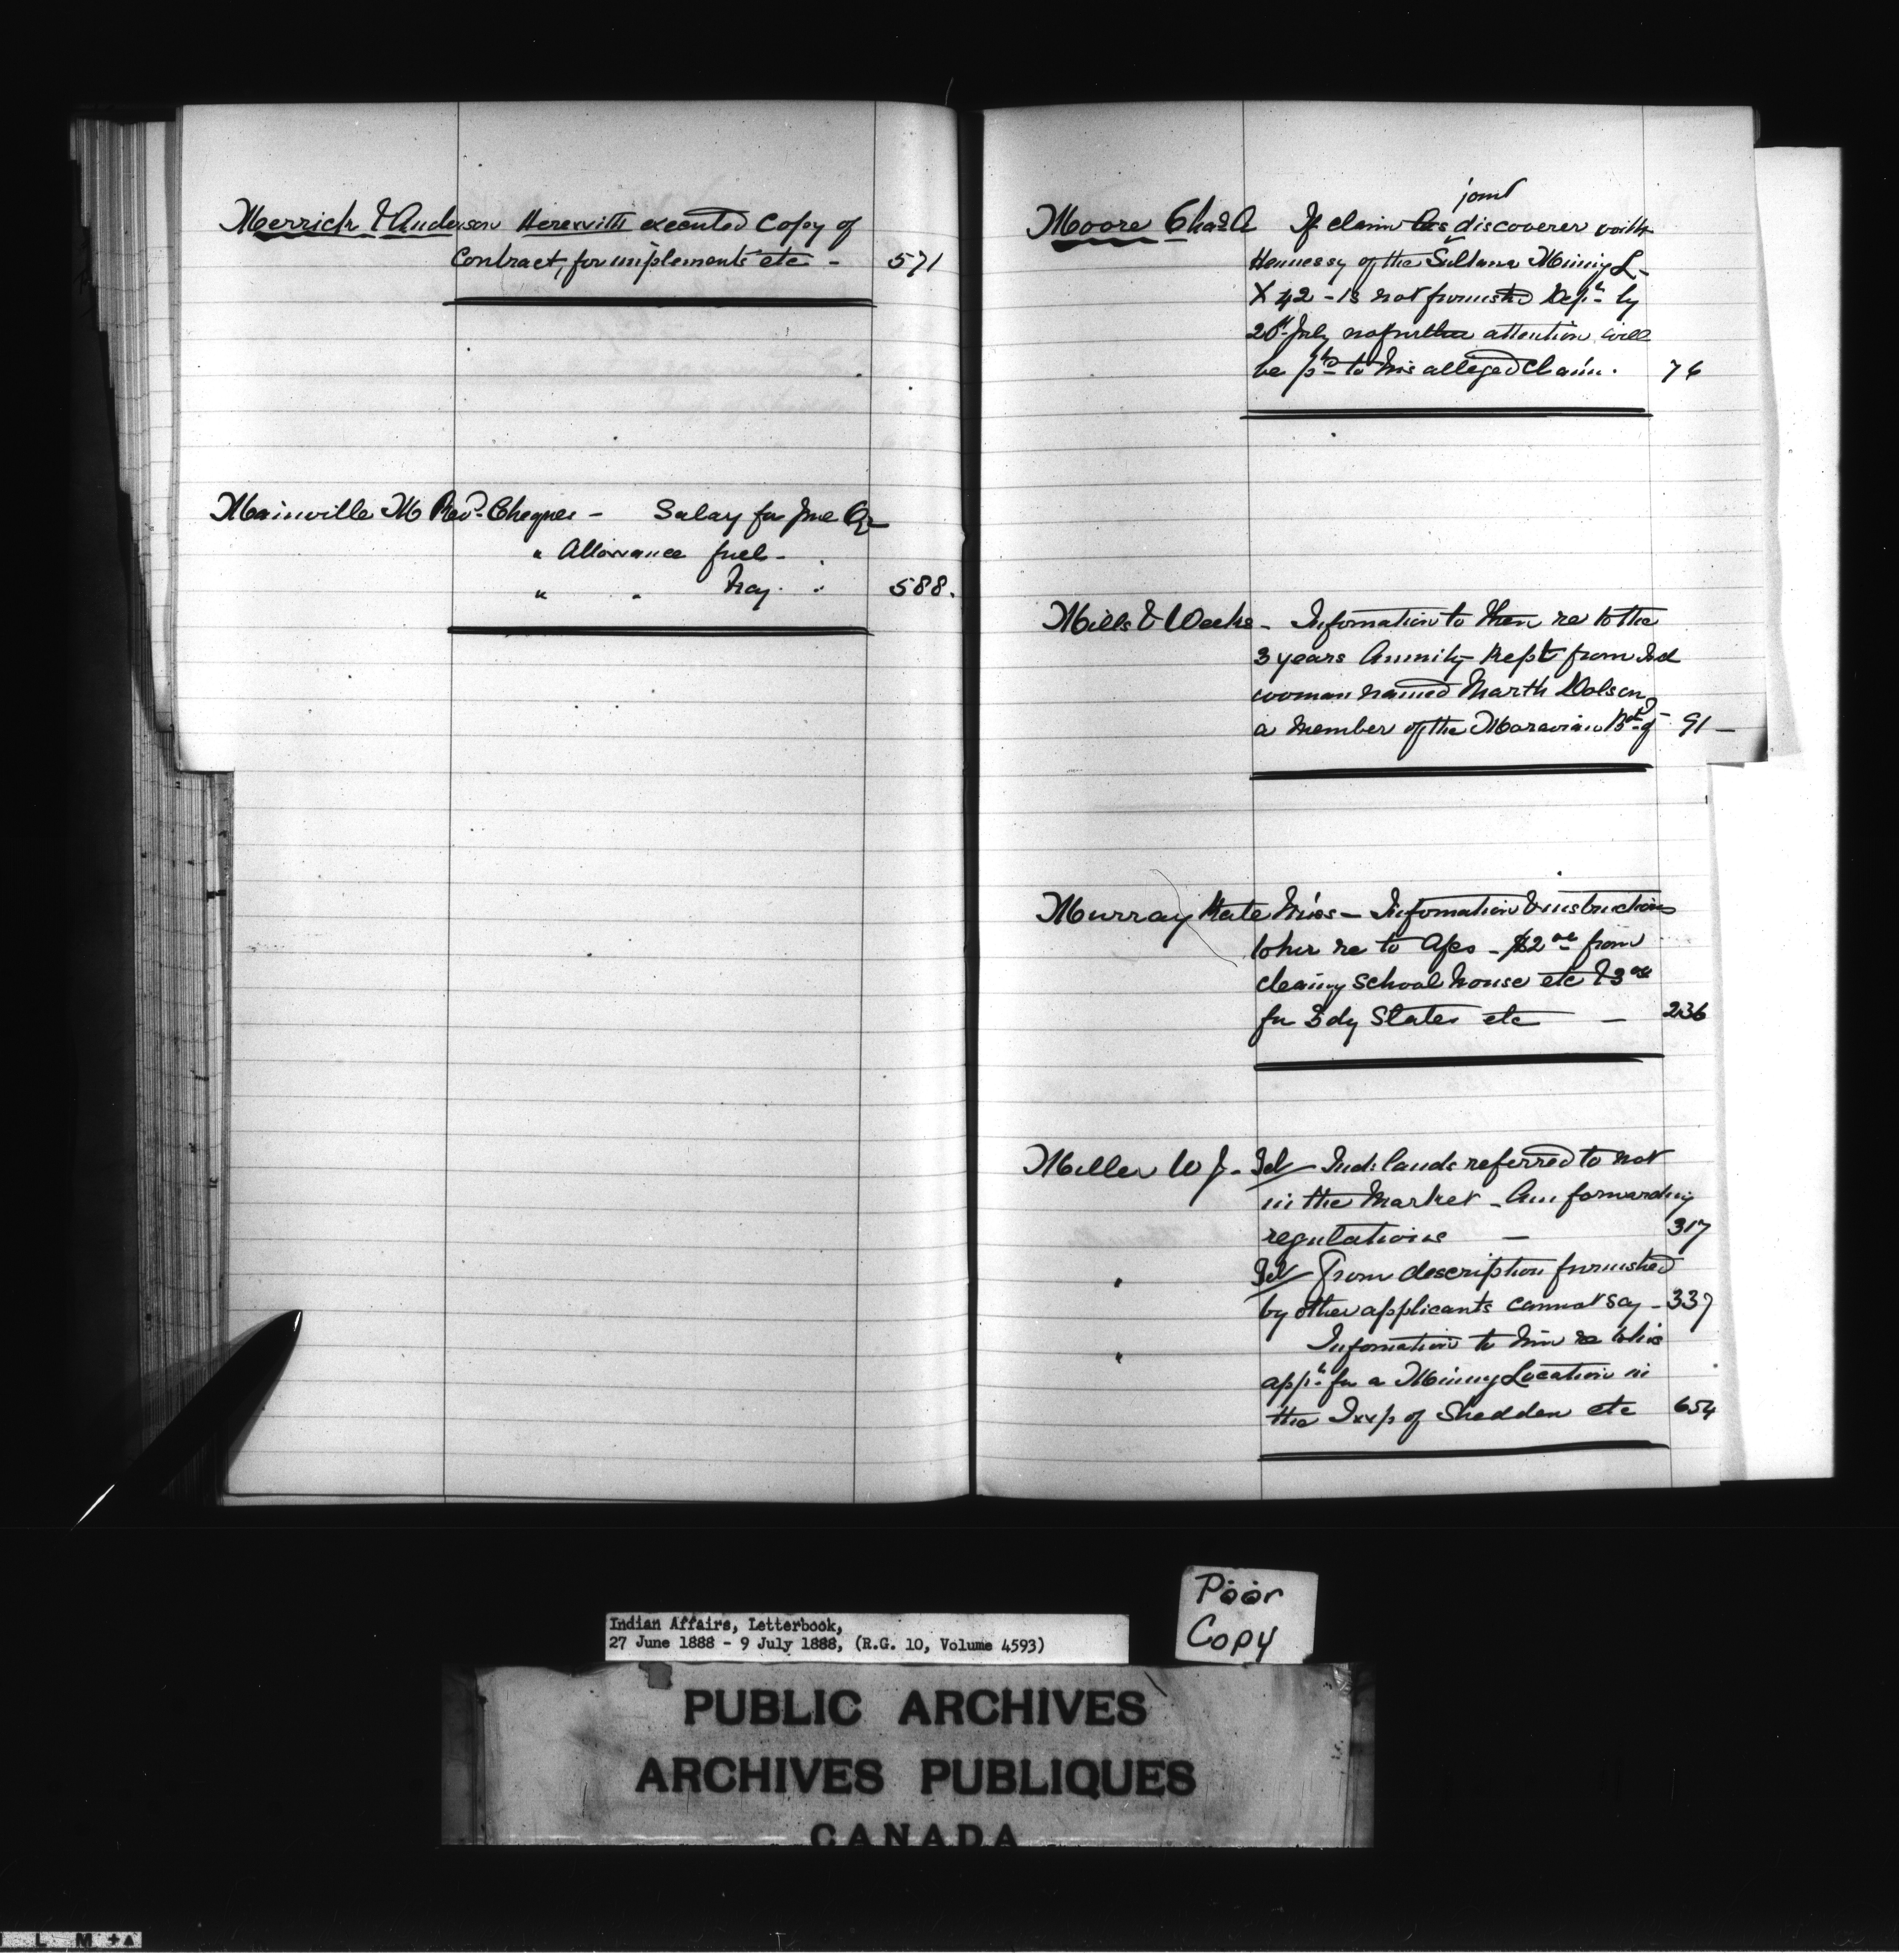 Merrick & Anderson Herewith executed Copy of
Contract, for implements etc - 571
Mainville M Revd. Cheques - Salary for June Qr
" Allowance fuel -
" " Hay. " 588.
joint
Moore Chas A If claim as discoverer with
Hennessy of the Sultana Mining L-
X 42 - is not furnished Dept. by
July no further attention will
be pd to his alleged Claim. 76
Mills & Weeks - Information to them re to the
3 years Annuity Kept from Ind
woman named Marth Dolson
a member of the Moravian Bd of 91 -
Murray Kate Miss - Information & instructions
to her re to A/cs - $2 00 from
cleaing School house etc & 3 00
for Bdy Slates etc - 236
Miller W J. - Tel Ind. lands referred to not
in the Market - Am forwarding
regulations - 317
" Tel From description furnished
by other applicants cannot say - 337
" Information to him re to his
appn. for a Mining Location in
the Twp of Shedden etc 654
Poor
Copy
Indian Affairs, Letterbook,
27 June 1888 - 9 July 1888, (R.G. 10, Volume 4593)
PUBLIC ARCHIVES
ARCHIVES PUBLIQUES
CANADA
L M +A